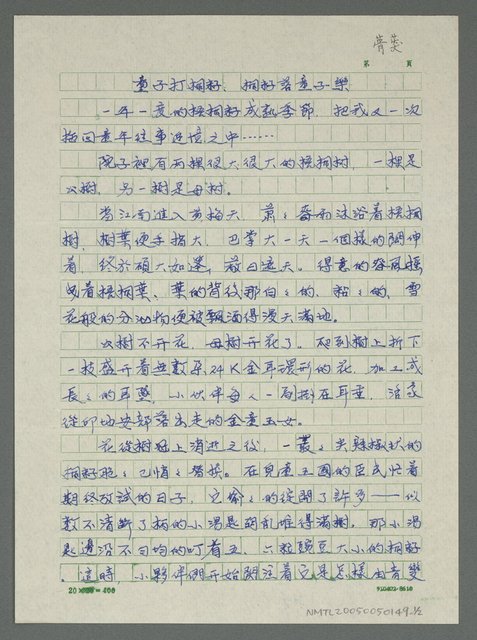 青燙
第 頁
童子打桐籽、桐籽落童子樂
一年一度的梧桐籽成熟季節，把我又一次
拖回童年往事迷境之中……
院子裡有兩棵很大很大的梧桐樹，一棵是
公樹，另一樹是母樹。
當江南進入黃梅天，蕭々番雨沐浴着梧桐
樹，樹葉便手指大、巴掌大一天一個樣的開伸
着，終於碩大如蓬，蔽日遮天。得意的春風搖
曳着梧桐葉，葉的背後那白々的、粘々的、雪
花般的分泌物便被飄洒得漫天滿地。
公樹不開花，母樹開花了。爬到樹上折下
一枝盛開着無數朵24K金耳環形的花，加工成
長々的耳墜，小伙伴每人一副掛在耳垂，活象
從印地安部落出走的金童玉女。
花從樹冠上消逝之後，一叢々尖辣椒狀的
桐籽胞々已悄々替換。在兒童王國的臣民忙着
期終攷試的日子，它偷々的從開了許多——似
數不清斷了柄的小湯匙胡亂堆得滿樹。那小湯
匙邊沿不勻均的叮着五、六粒豌豆大小的桐籽
。這時，小夥伴們開始關注着它是怎樣由青變
20×20=400
NMTL20050050149-1/2